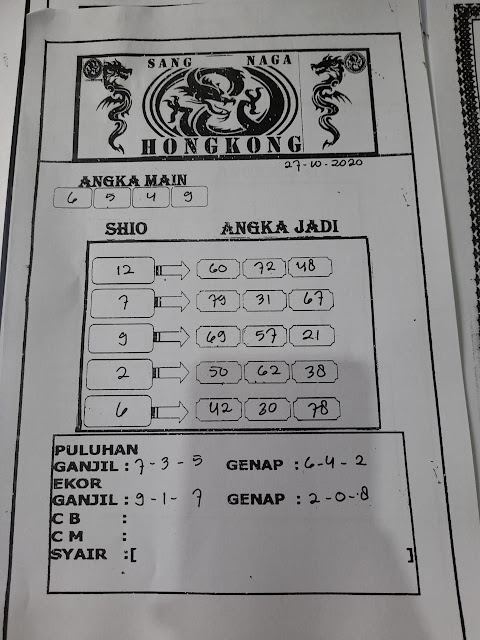 SANG NAGA
HONGKONG
27-10-2020
ANGKA MAIN
6 5 4 9
SHIO ANGKA JADI
12 60 72 48
7 79 31 67
9 69 57 21
2 50 62 38
6 42 30 78
PULUHAN
GANJIL : 7-3-5 GENAP : 6-4-2
EKOR
GANJIL : 9-1-7 GENAP : 2-0-8
C B :
C M :
SYAIR :[ ]